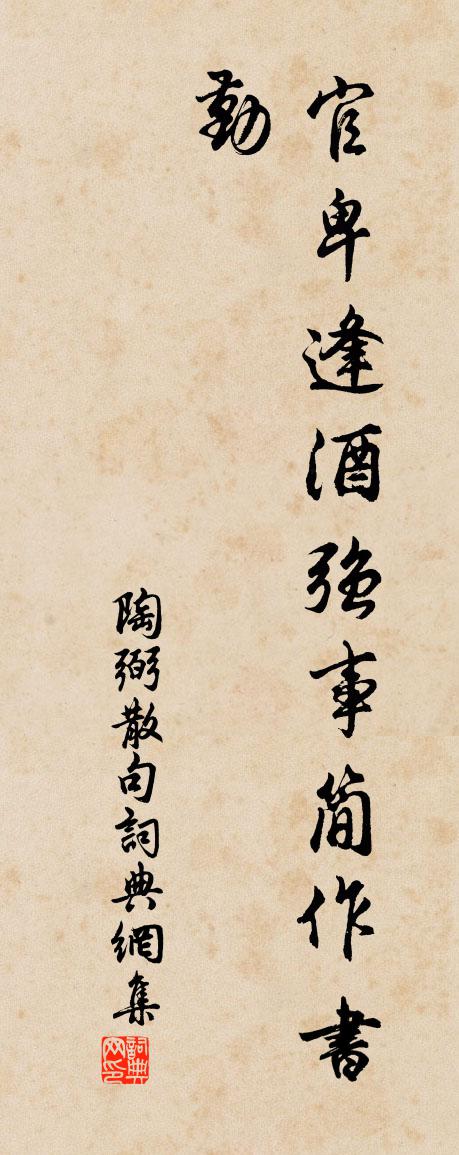 官卑逢酒強事簡作書
勤
陶弼散句詞典網集
詞典网印